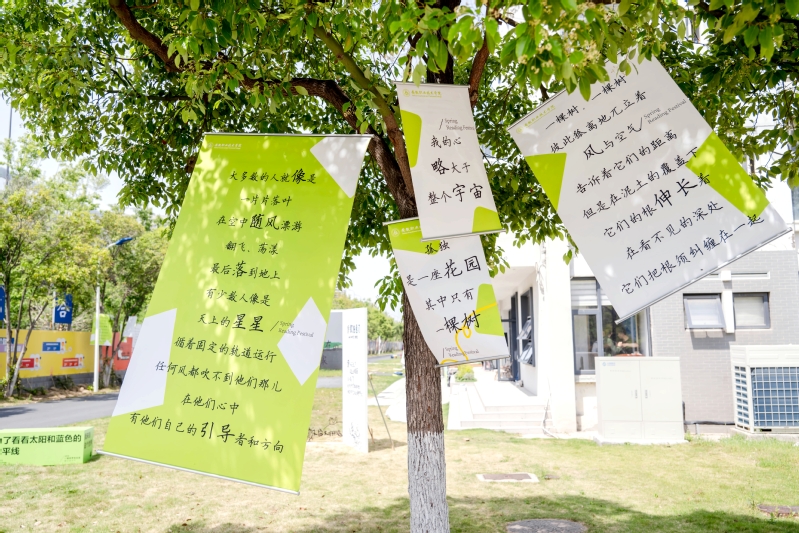 大多数的人就像是
一片片落叶
在空中随风漂游
翻飞、荡漾
最后落到地上
有少数人像是
天上的星星
循着固定的轨道运行
任何风都吹不到他们那儿
在他们心中
有他们自己的引导者和方向
/ Spring
Reading Festival
我的心
略大于
整个宇宙
/ Spring
Reading Festival
孤独
是一座花园
其中只有
一棵树
/ Spring
Reading Festival
一棵树,一棵树
彼此孤离地兀立着
风与空气
告诉着它们的距离
但是在泥土的覆盖下
它们的根伸长着
在看不见的深处
它们把根须纠缠在一起
/ Spring
Reading Festival
了看看太阳和蓝色的
平线